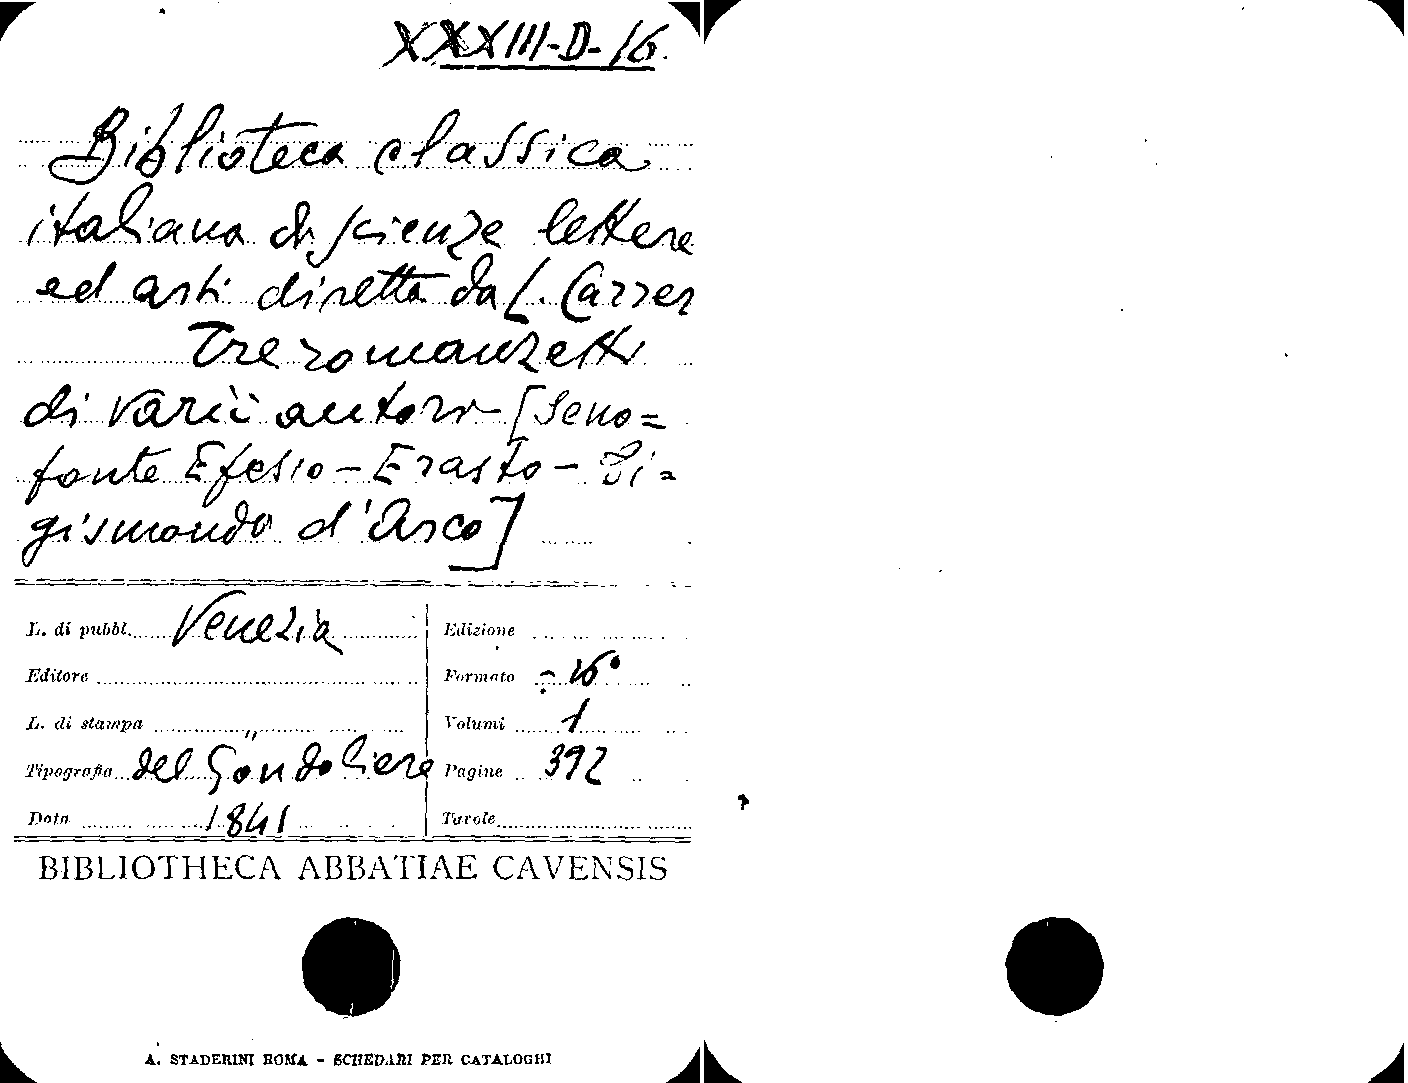 XXXIII-D-16.
Biblioteca classica
italiana di scienze lettere
ed arti diretta da L. Carrer
Tre romanzetti
di varii autori - [Seno=
fonte Efesio - Erasto - Si=
gismondo d'Arco]
L. di pubbl. Venezia
Editore
L. di stampa
Tipografia del Gondoliere
Data 1841
Edizione
Formato - 16°
Volumi 1
Pagine 392
Tavole
BIBLIOTHECA ABBATIAE CAVENSIS
A. STADERINI ROMA - SCHEDARI PER CATALOGHI